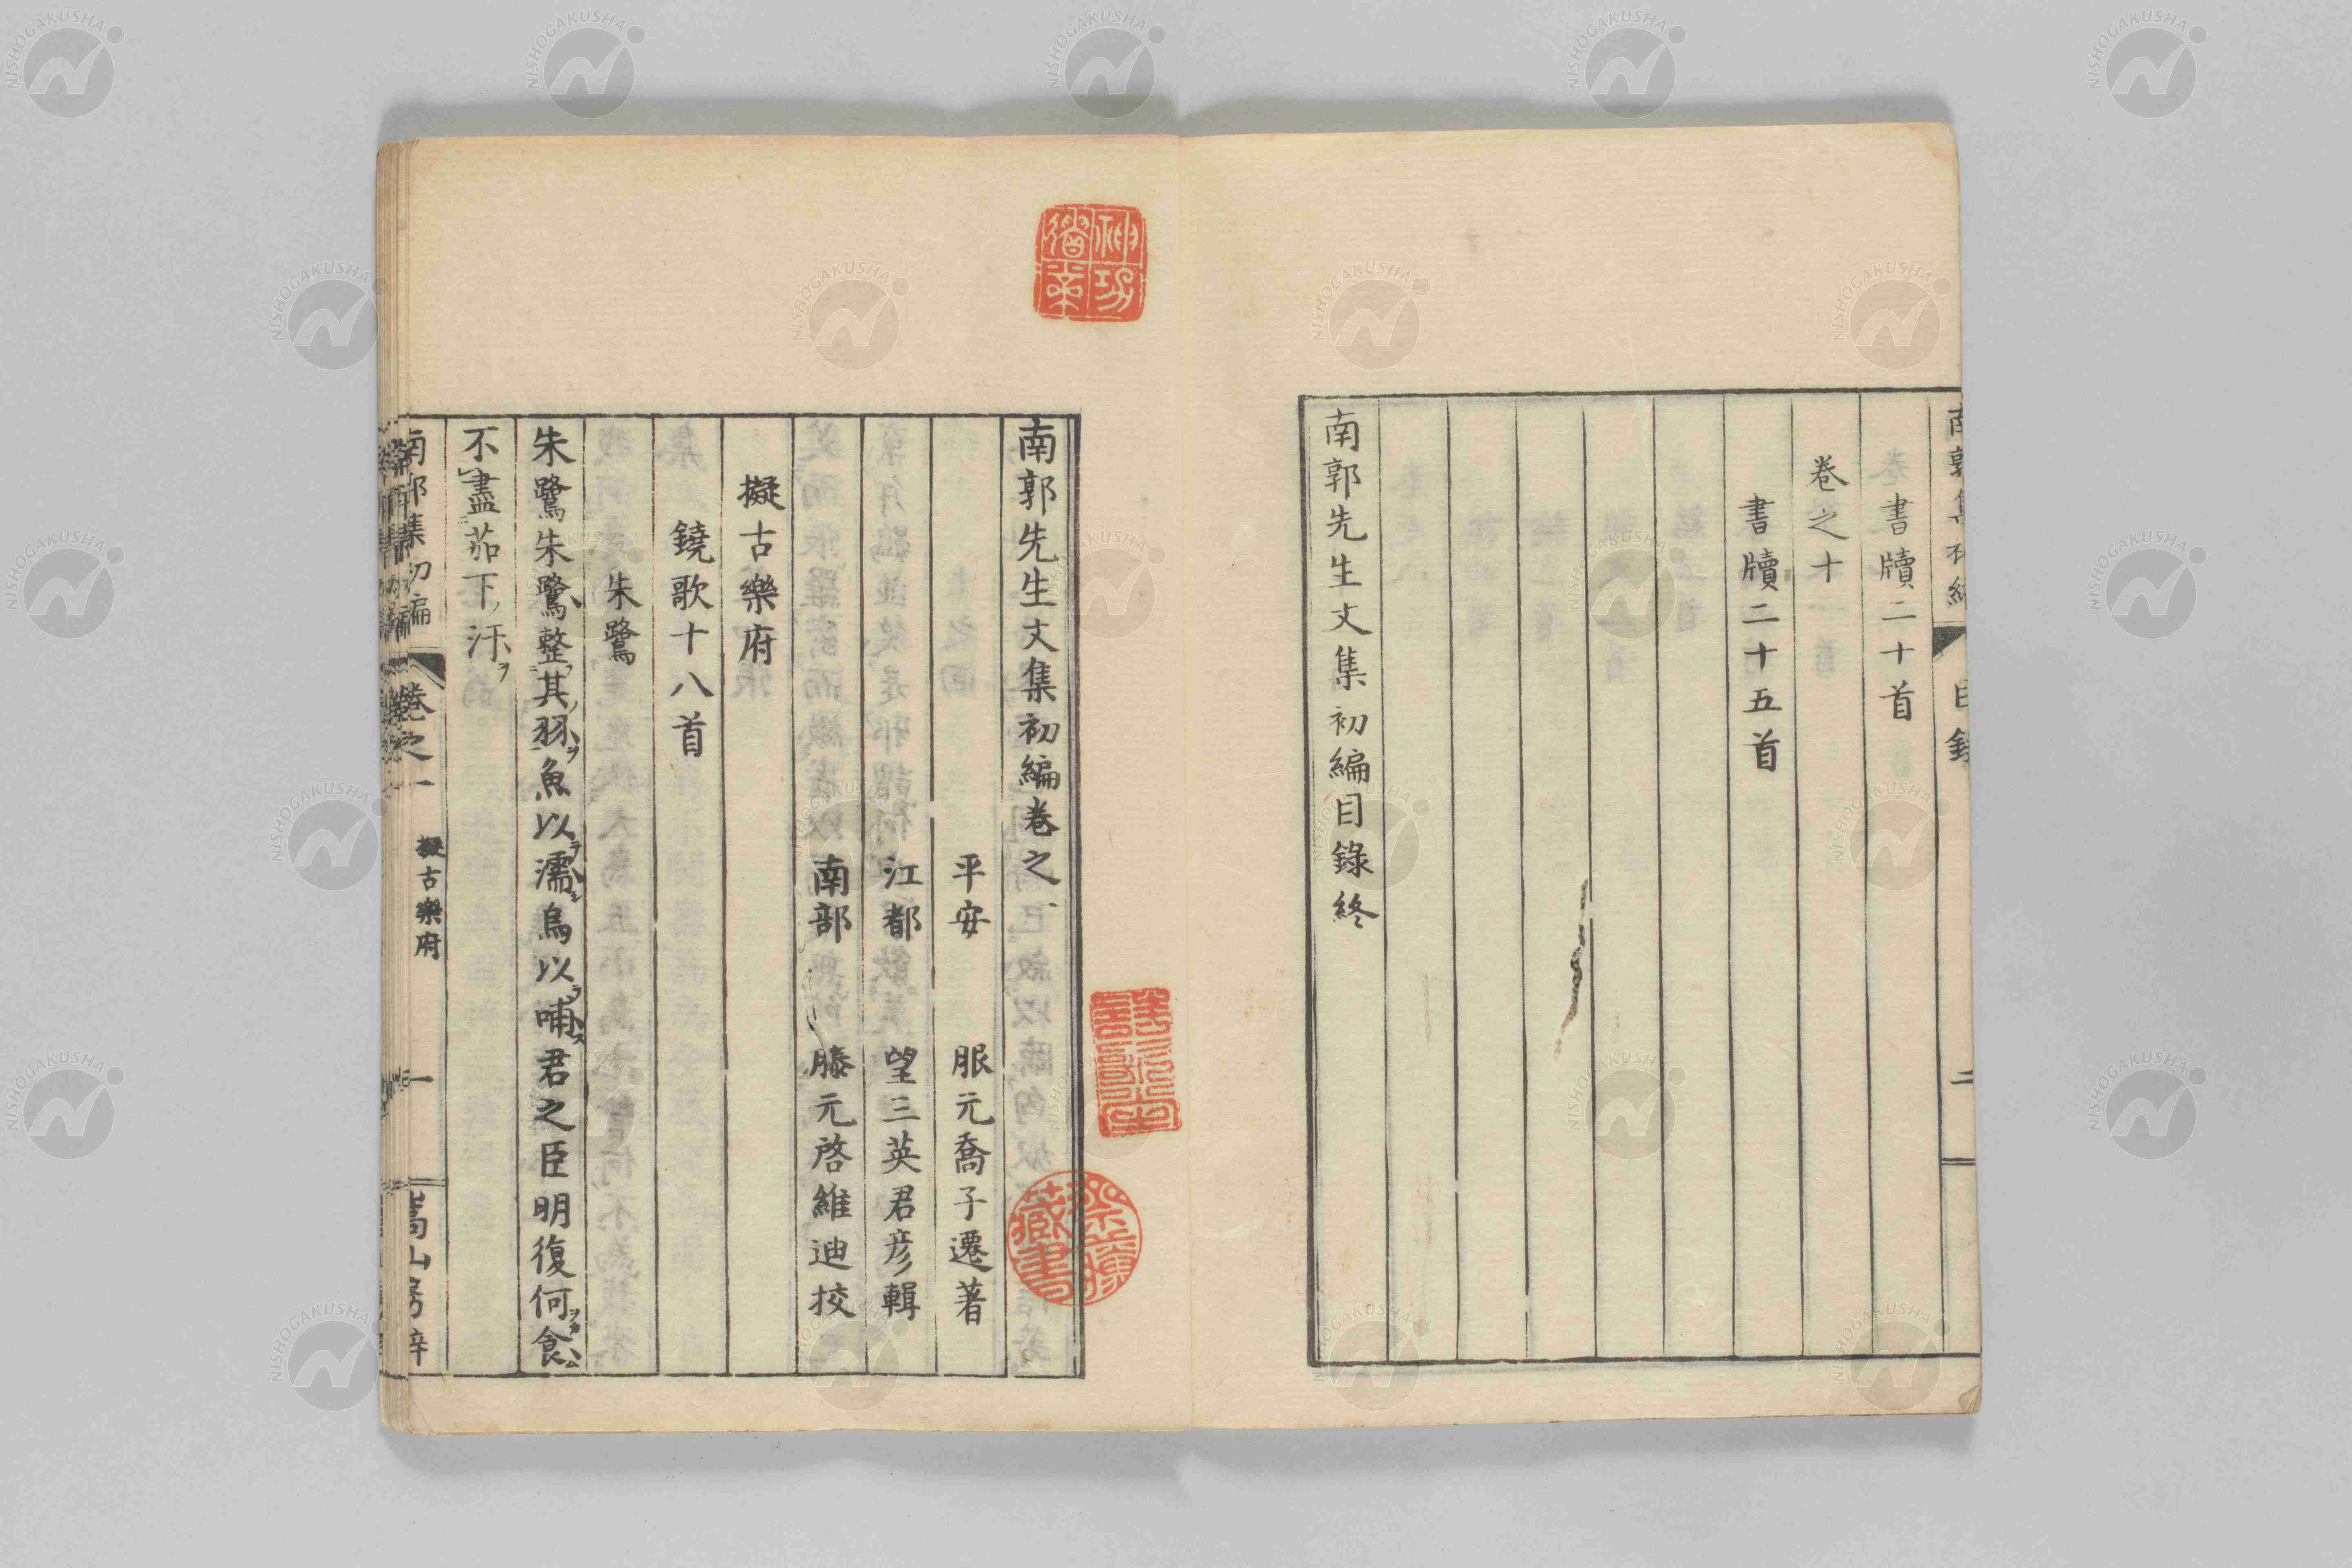 書牘二十首
卷之十
書牘二十五首
南郭先生文集初編目錄終
目錄
二
南郭先生文集初編卷之一
平安 服元喬子遷著
江都 望三英君彦輯
南部 滕元啓維迪挍
擬古樂府
鐃歌十八首
朱鷺
朱鷺朱鷺整其羽魚以濡烏以哺君之臣明復何食
不盡茄下汙
南郭集初編 卷之一 擬古樂府 一 嵩山房梓
藏書
NISHOGAKUSHA